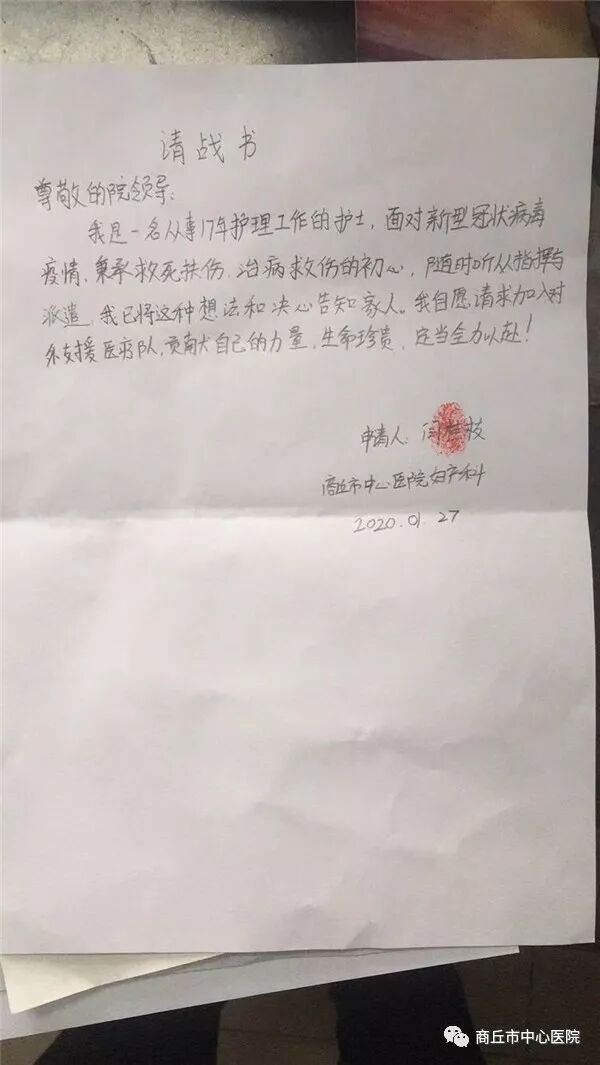 请战书
尊敬的院领导：
我是一名从事17年护理工作的护士，面对新型冠状病毒
疫情，秉承救死扶伤，治病救伤的初心，随时听从指挥与
派遣，我已将这种想法和决心告知家人。我自愿请求加入对
外支援医疗队，贡献自己的力量，生命珍贵，定当全力以赴！
申请人：闫 枝
商丘市中心医院妇产科
2020.01.27
商丘市中心医院